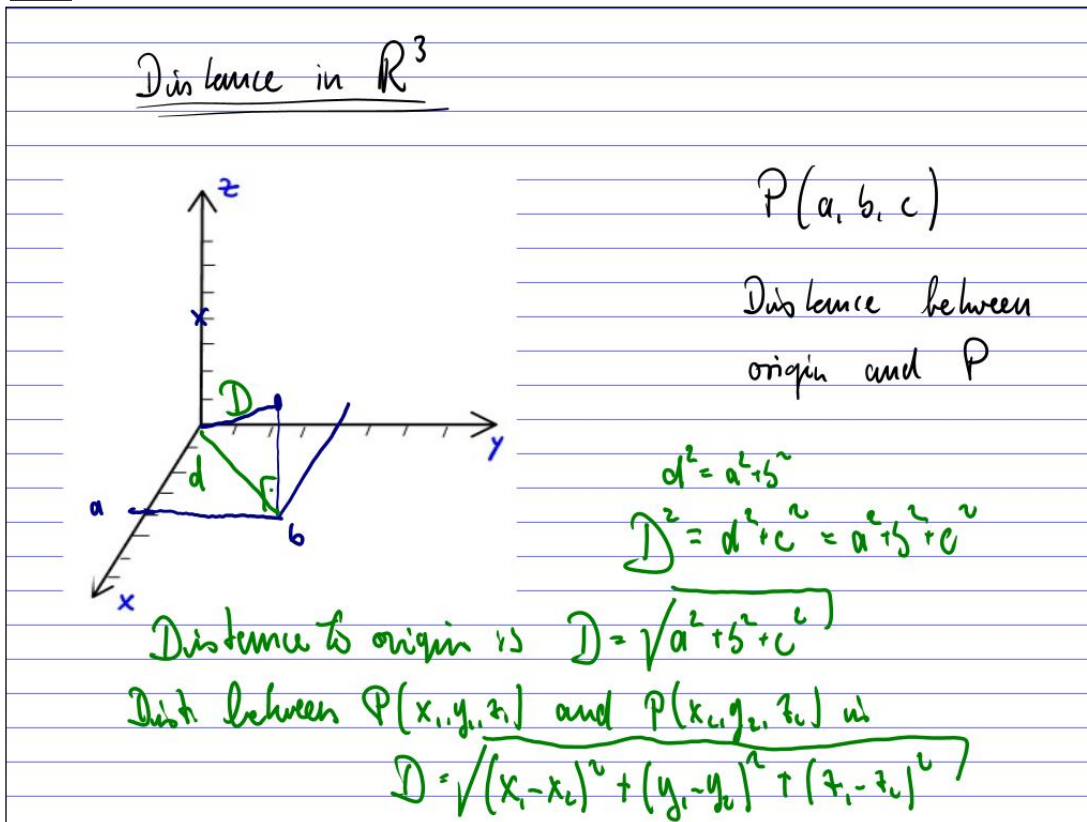 Distance in R³
z
P(a, b, c)
Distance between
origin and P
x
D
y
d
a
b
x
d² = a² + b²
D² = d² + c² = a² + b² + c²
Distance to origin is D = √(a² + b² + c²)
Dist. between P(x₁, y₁, z₁) and P(x₂, y₂, z₂) is
D = √((x₁ - x₂)² + (y₁ - y₂)² + (z₁ - z₂)²)